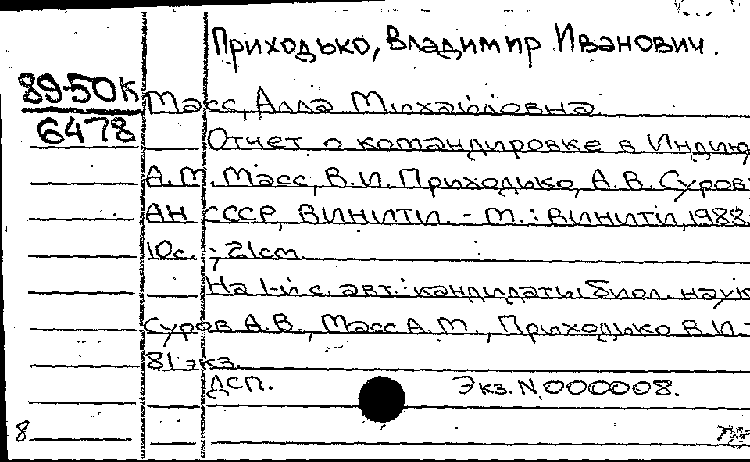 Приходько, Владимир Иванович.
89-50К
6478
Масс, Алла Михайловна.
Отчет о командировке в Индию
А.М. Масс, В.И. Приходько, А.В. Суров
АН СССР, ВИНИТИ. - М.: ВИНИТИ, 1988.
10с.; 21см.
На 1-й с. авт.: кандидаты биол. наук
Суров А.В., Масс А.М., Приходько В.И.
81 экз.
ДСП. Экз. N 000008.
8